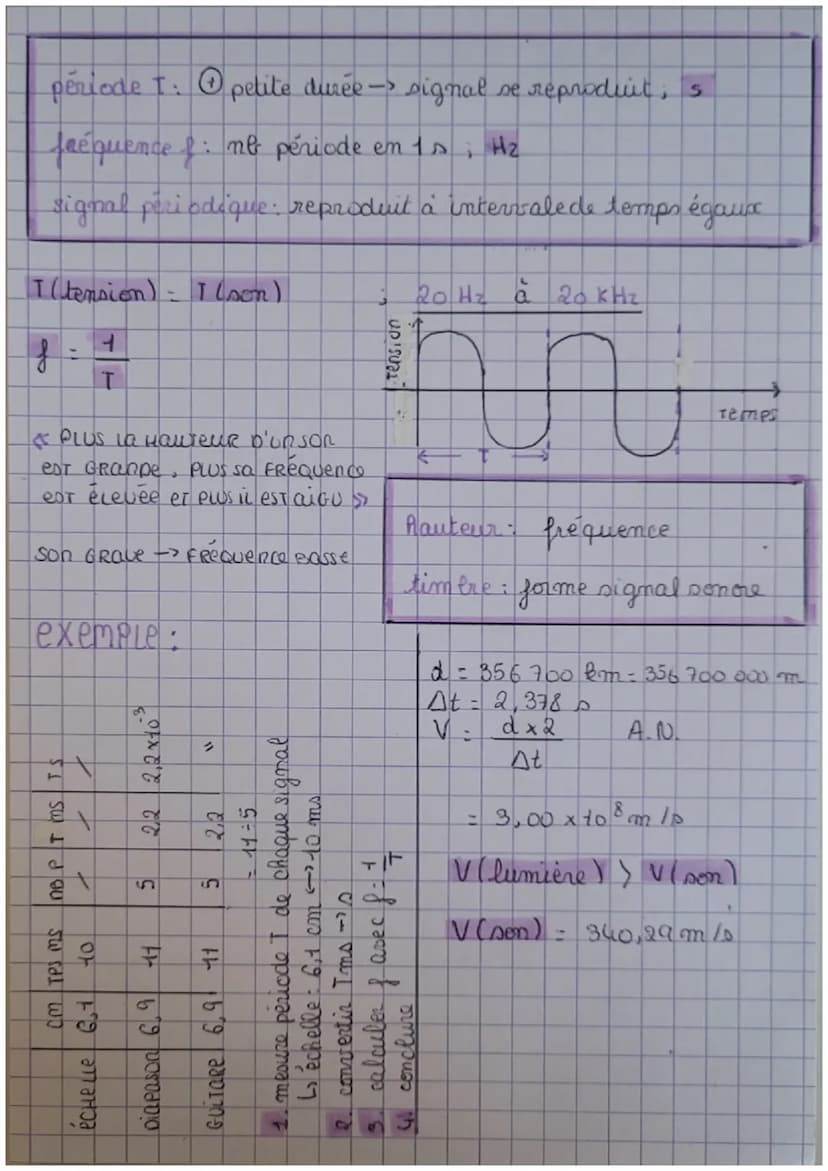 période T: ⊕ petite durée → signal se reproduit ; s
fréquence f : nb période en 1 s ; Hz
signal périodique : reproduit à intervalle de temps égaux
T (tension) = T (son)
; 20 Hz à 20 KHz
f = 1/T
Tension
Temps
T
« PLUS LA HAUTEUR D'UN SON
EST GRANDE, PLUS SA FRÉQUENCE
EST ÉLEVÉE ET PLUS IL EST AIGU »
SON GRAVE → FRÉQUENCE BASSE
Hauteur : fréquence
timbre : forme signal sonore
exemple :
CM | TPS MS | NB P | T MS | T S
ÉCHELLE | 6,1 | 10 | / | / | /
DIAPASON | 6,9 | 11 | 5 | 2,2 | 2,2 x 10^-3
GUITARE | 6,9 | 11 | 5 | 2,2 | "
= 11 ÷ 5
1. mesure période T de chaque signal
↳ échelle : 6,1 cm ↔ 10 ms
2. convertir T ms → s
3. calculer f avec f = 1/T
4. conclure
d = 356 700 km = 356 700 000 m
Δt = 2,378 s
V = d x 2 / Δt A.N.
= 3,00 x 10^8 m/s
V (lumière) > V (son)
V (son) = 340,29 m/s